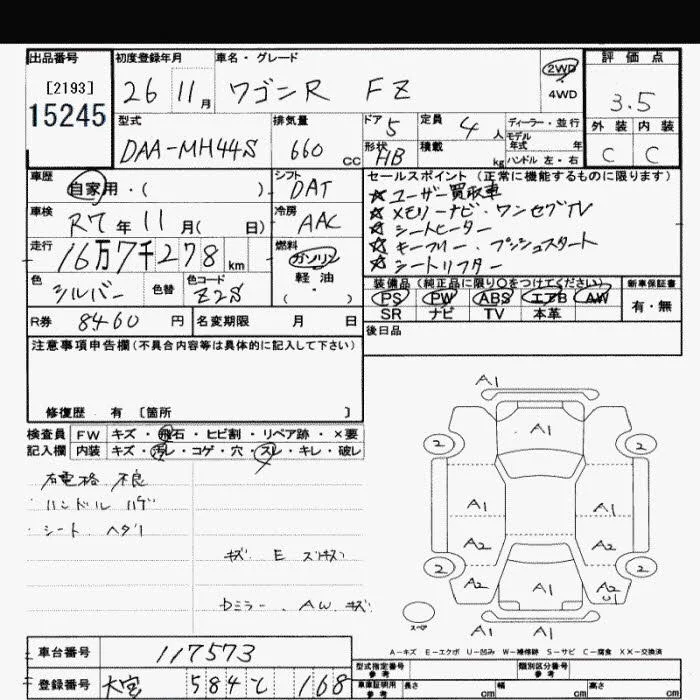 出品番号 初度登録年月 車名・グレード 2WD 評価点
[2193] 26 11月 ワゴンR FZ 4WD 3.5
15245
型式 排気量 ドア 定員 ディーラー・並行 外装 内装
DAA-MH44S 660cc 5 4人 モデル年式 年 C C
形状 積載 kg ハンドル 左・右
HB
車歴 シフト セールスポイント(正常に機能するものに限ります)
自家用・( ) DAT ☆ユーザー買取車
車検 冷房 ☆メモリーナビ・ワンセグTV
R7年11月( 日) AAC ☆シートヒーター
走行 燃料 ☆キーフリー・プッシュスタート
16万7千278km ガソリン ☆シートリフター
色 色替 色コード 軽油 装備品(純正品に限り○をつけてください) 新車保証書
シルバー Z2S (・) PS PW ABS エアB AW 有・無
SR ナビ TV 本革
R券 8460円 名変期限 月 日 後日品
注意事項申告欄(不具合内容等は具体的に記入して下さい)
修復歴 有 [箇所 ]
検査員 FW キズ・飛石・ヒビ割・リペア跡・×要
記入欄 内装 キズ・汚レ・コゲ・穴・スレ・キレ・破レ
ハンドル ハゲ
シート ヘタリ
A1
A1
2 2
A1 A1
A2 A2
2 2
A2 A1 A2
U1
スペア A1 A1
A-キズ E-エクボ U-凹み W-補修跡 S-サビ C-腐食 XX-交換済
車台番号 117573
型式指定番号 参考 類別区分番号 参考
登録番号 大宮 584 168
車庫証明用 参考 長さ cm 幅 cm 高さ cm